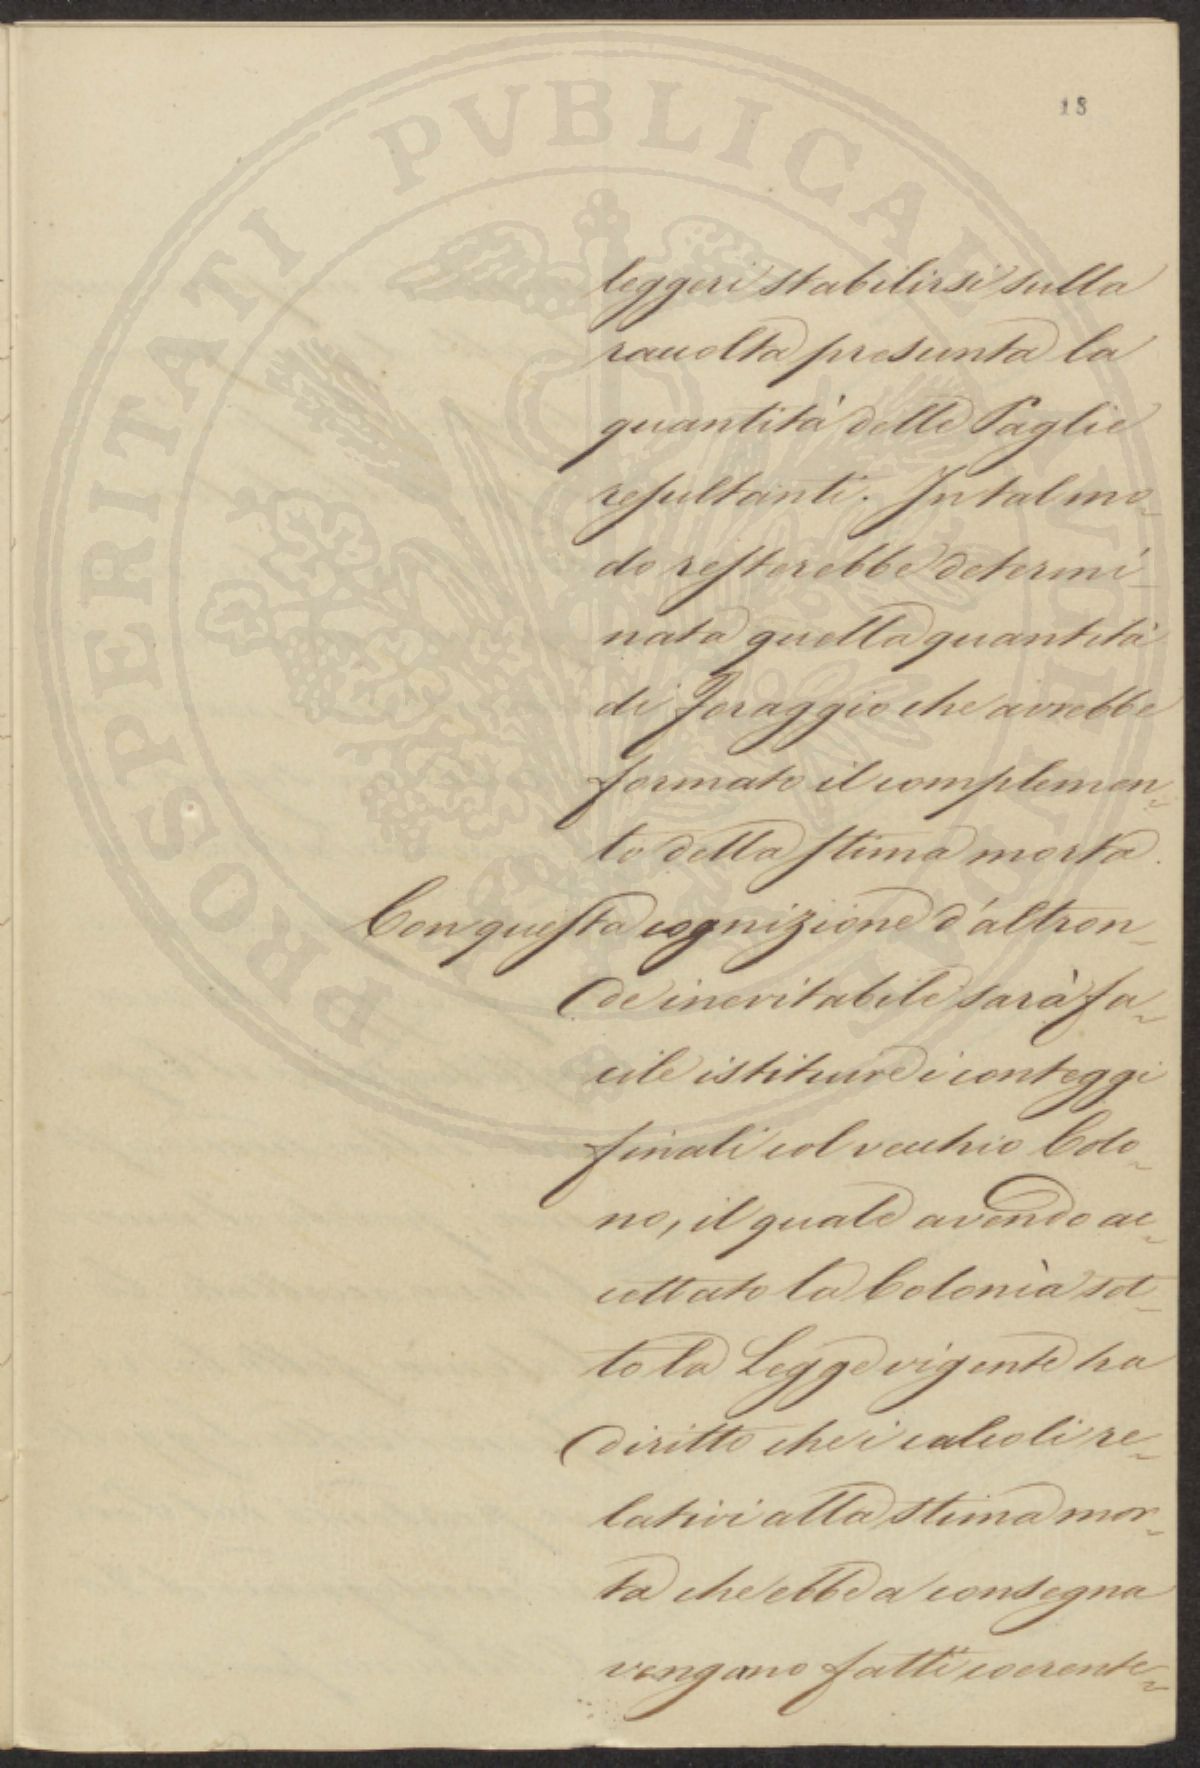 18
PROSPERITATI PVBLICAE AVGENDAE
leggeri stabilirsi sulla
raccolta presunta la
quantità delle Paglie
resultanti. In tal mo-
do resterebbe determi-
nata quella quantità
di Foraggio che avrebbe
formato il complemen-
to della stima morta.
Con questa cognizione d'altron-
de inevitabile sarà fa-
cile istituire i conteggi
finali col vecchio Colo-
no, il quale avendo ac-
cettato la Colonìa sot-
to la Legge vigente ha
diritto che i calcoli re-
lativi alla stima mor-
ta che ebbe a consegna
vengano fatti coerente-